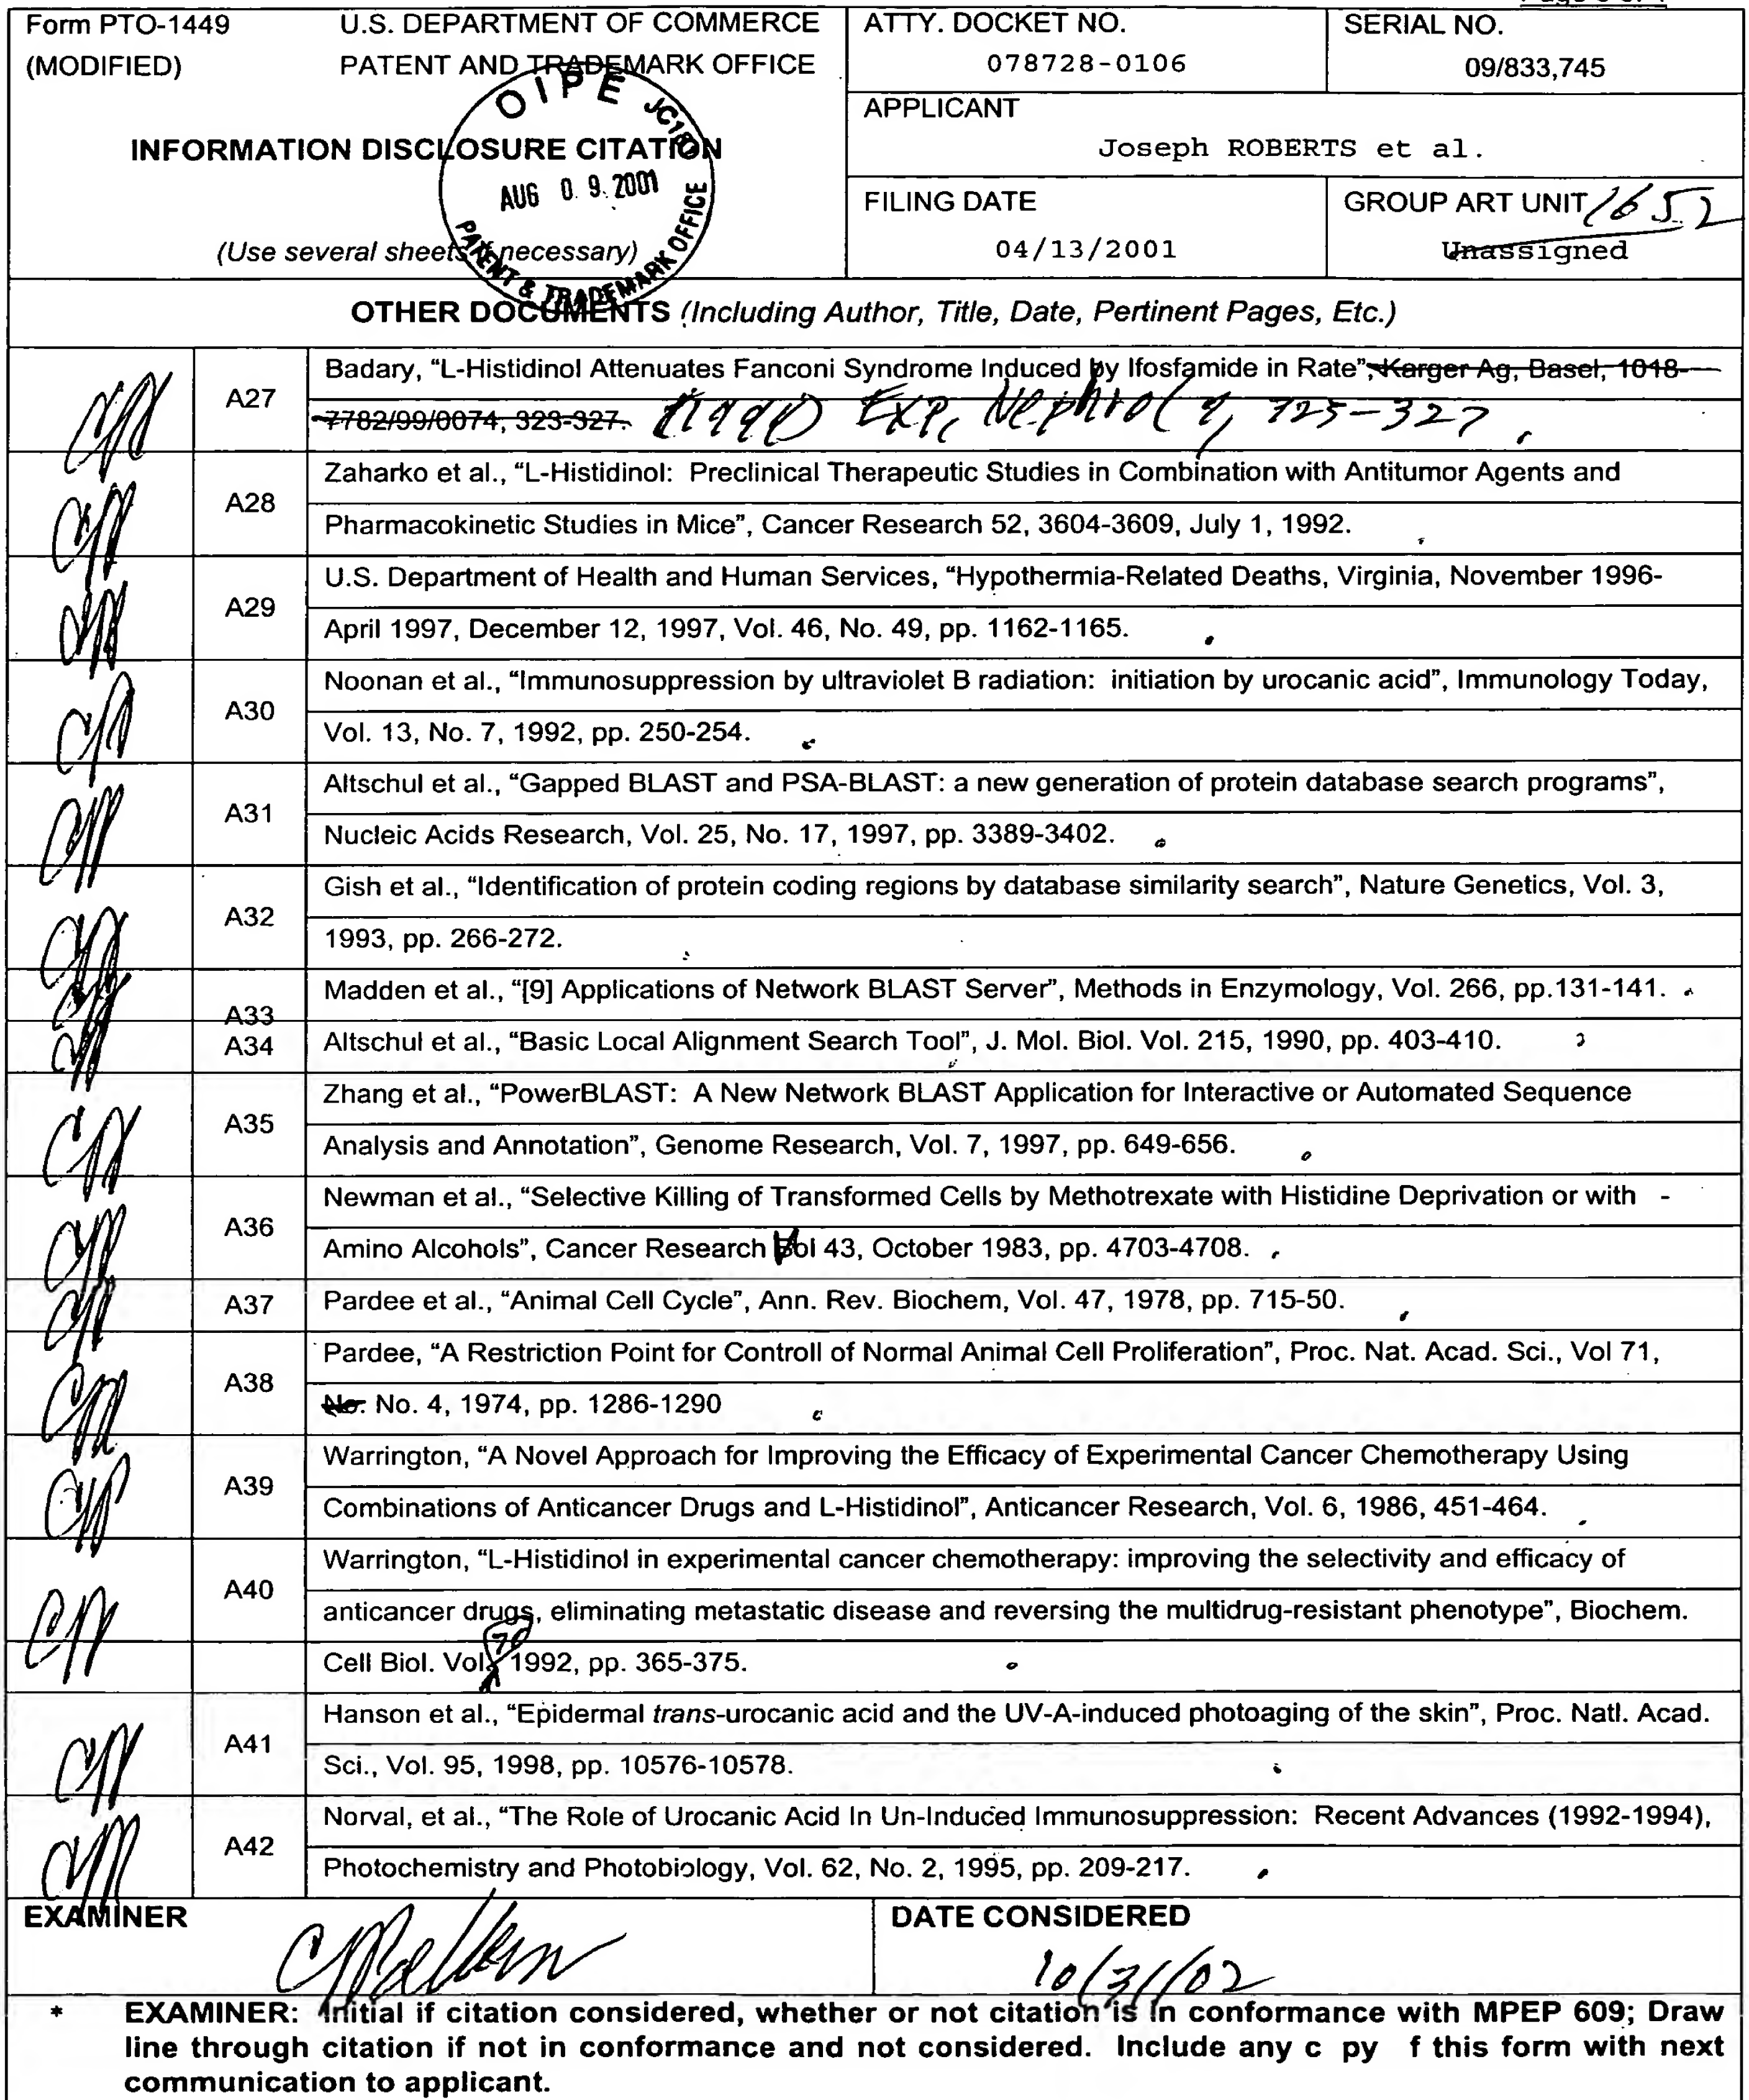 Form PTO-1449 U.S. DEPARTMENT OF COMMERCE
(MODIFIED) PATENT AND TRADEMARK OFFICE
OIPE JC18
AUG 0 9 2001
PATENT & TRADEMARK OFFICE
INFORMATION DISCLOSURE CITATION
(Use several sheets necessary)
ATTY. DOCKET NO.
078728-0106
SERIAL NO.
09/833,745
APPLICANT
Joseph ROBERTS et al.
FILING DATE
04/13/2001
GROUP ART UNIT 1652
Unassigned
OTHER DOCUMENTS (Including Author, Title, Date, Pertinent Pages, Etc.)
A27
Badary, “L-Histidinol Attenuates Fanconi Syndrome Induced by Ifosfamide in Rate”, Karger Ag, Basel, 1018-
7782/99/0074, 323-327. Exp. Nephrol 725-327
A28
Zaharko et al., “L-Histidinol: Preclinical Therapeutic Studies in Combination with Antitumor Agents and
Pharmacokinetic Studies in Mice”, Cancer Research 52, 3604-3609, July 1, 1992.
A29
U.S. Department of Health and Human Services, “Hypothermia-Related Deaths, Virginia, November 1996-
April 1997, December 12, 1997, Vol. 46, No. 49, pp. 1162-1165.
A30
Noonan et al., “Immunosuppression by ultraviolet B radiation: initiation by urocanic acid”, Immunology Today,
Vol. 13, No. 7, 1992, pp. 250-254.
A31
Altschul et al., “Gapped BLAST and PSA-BLAST: a new generation of protein database search programs”,
Nucleic Acids Research, Vol. 25, No. 17, 1997, pp. 3389-3402.
A32
Gish et al., “Identification of protein coding regions by database similarity search”, Nature Genetics, Vol. 3,
1993, pp. 266-272.
A33
Madden et al., “[9] Applications of Network BLAST Server”, Methods in Enzymology, Vol. 266, pp.131-141.
A34
Altschul et al., “Basic Local Alignment Search Tool”, J. Mol. Biol. Vol. 215, 1990, pp. 403-410.
A35
Zhang et al., “PowerBLAST: A New Network BLAST Application for Interactive or Automated Sequence
Analysis and Annotation”, Genome Research, Vol. 7, 1997, pp. 649-656.
A36
Newman et al., “Selective Killing of Transformed Cells by Methotrexate with Histidine Deprivation or with
Amino Alcohols”, Cancer Research Vol 43, October 1983, pp. 4703-4708.
A37
Pardee et al., “Animal Cell Cycle”, Ann. Rev. Biochem, Vol. 47, 1978, pp. 715-50.
A38
Pardee, “A Restriction Point for Controll of Normal Animal Cell Proliferation”, Proc. Nat. Acad. Sci., Vol 71,
No. No. 4, 1974, pp. 1286-1290
A39
Warrington, “A Novel Approach for Improving the Efficacy of Experimental Cancer Chemotherapy Using
Combinations of Anticancer Drugs and L-Histidinol”, Anticancer Research, Vol. 6, 1986, 451-464.
A40
Warrington, “L-Histidinol in experimental cancer chemotherapy: improving the selectivity and efficacy of
anticancer drugs, eliminating metastatic disease and reversing the multidrug-resistant phenotype”, Biochem.
Cell Biol. Vol. 70 1992, pp. 365-375.
A41
Hanson et al., “Epidermal trans-urocanic acid and the UV-A-induced photoaging of the skin”, Proc. Natl. Acad.
Sci., Vol. 95, 1998, pp. 10576-10578.
A42
Norval, et al., “The Role of Urocanic Acid In Un-Induced Immunosuppression: Recent Advances (1992-1994),
Photochemistry and Photobiology, Vol. 62, No. 2, 1995, pp. 209-217.
EXAMINER
DATE CONSIDERED
10/31/02
* EXAMINER: Initial if citation considered, whether or not citation is in conformance with MPEP 609; Draw
line through citation if not in conformance and not considered. Include any c py f this form with next
communication to applicant.